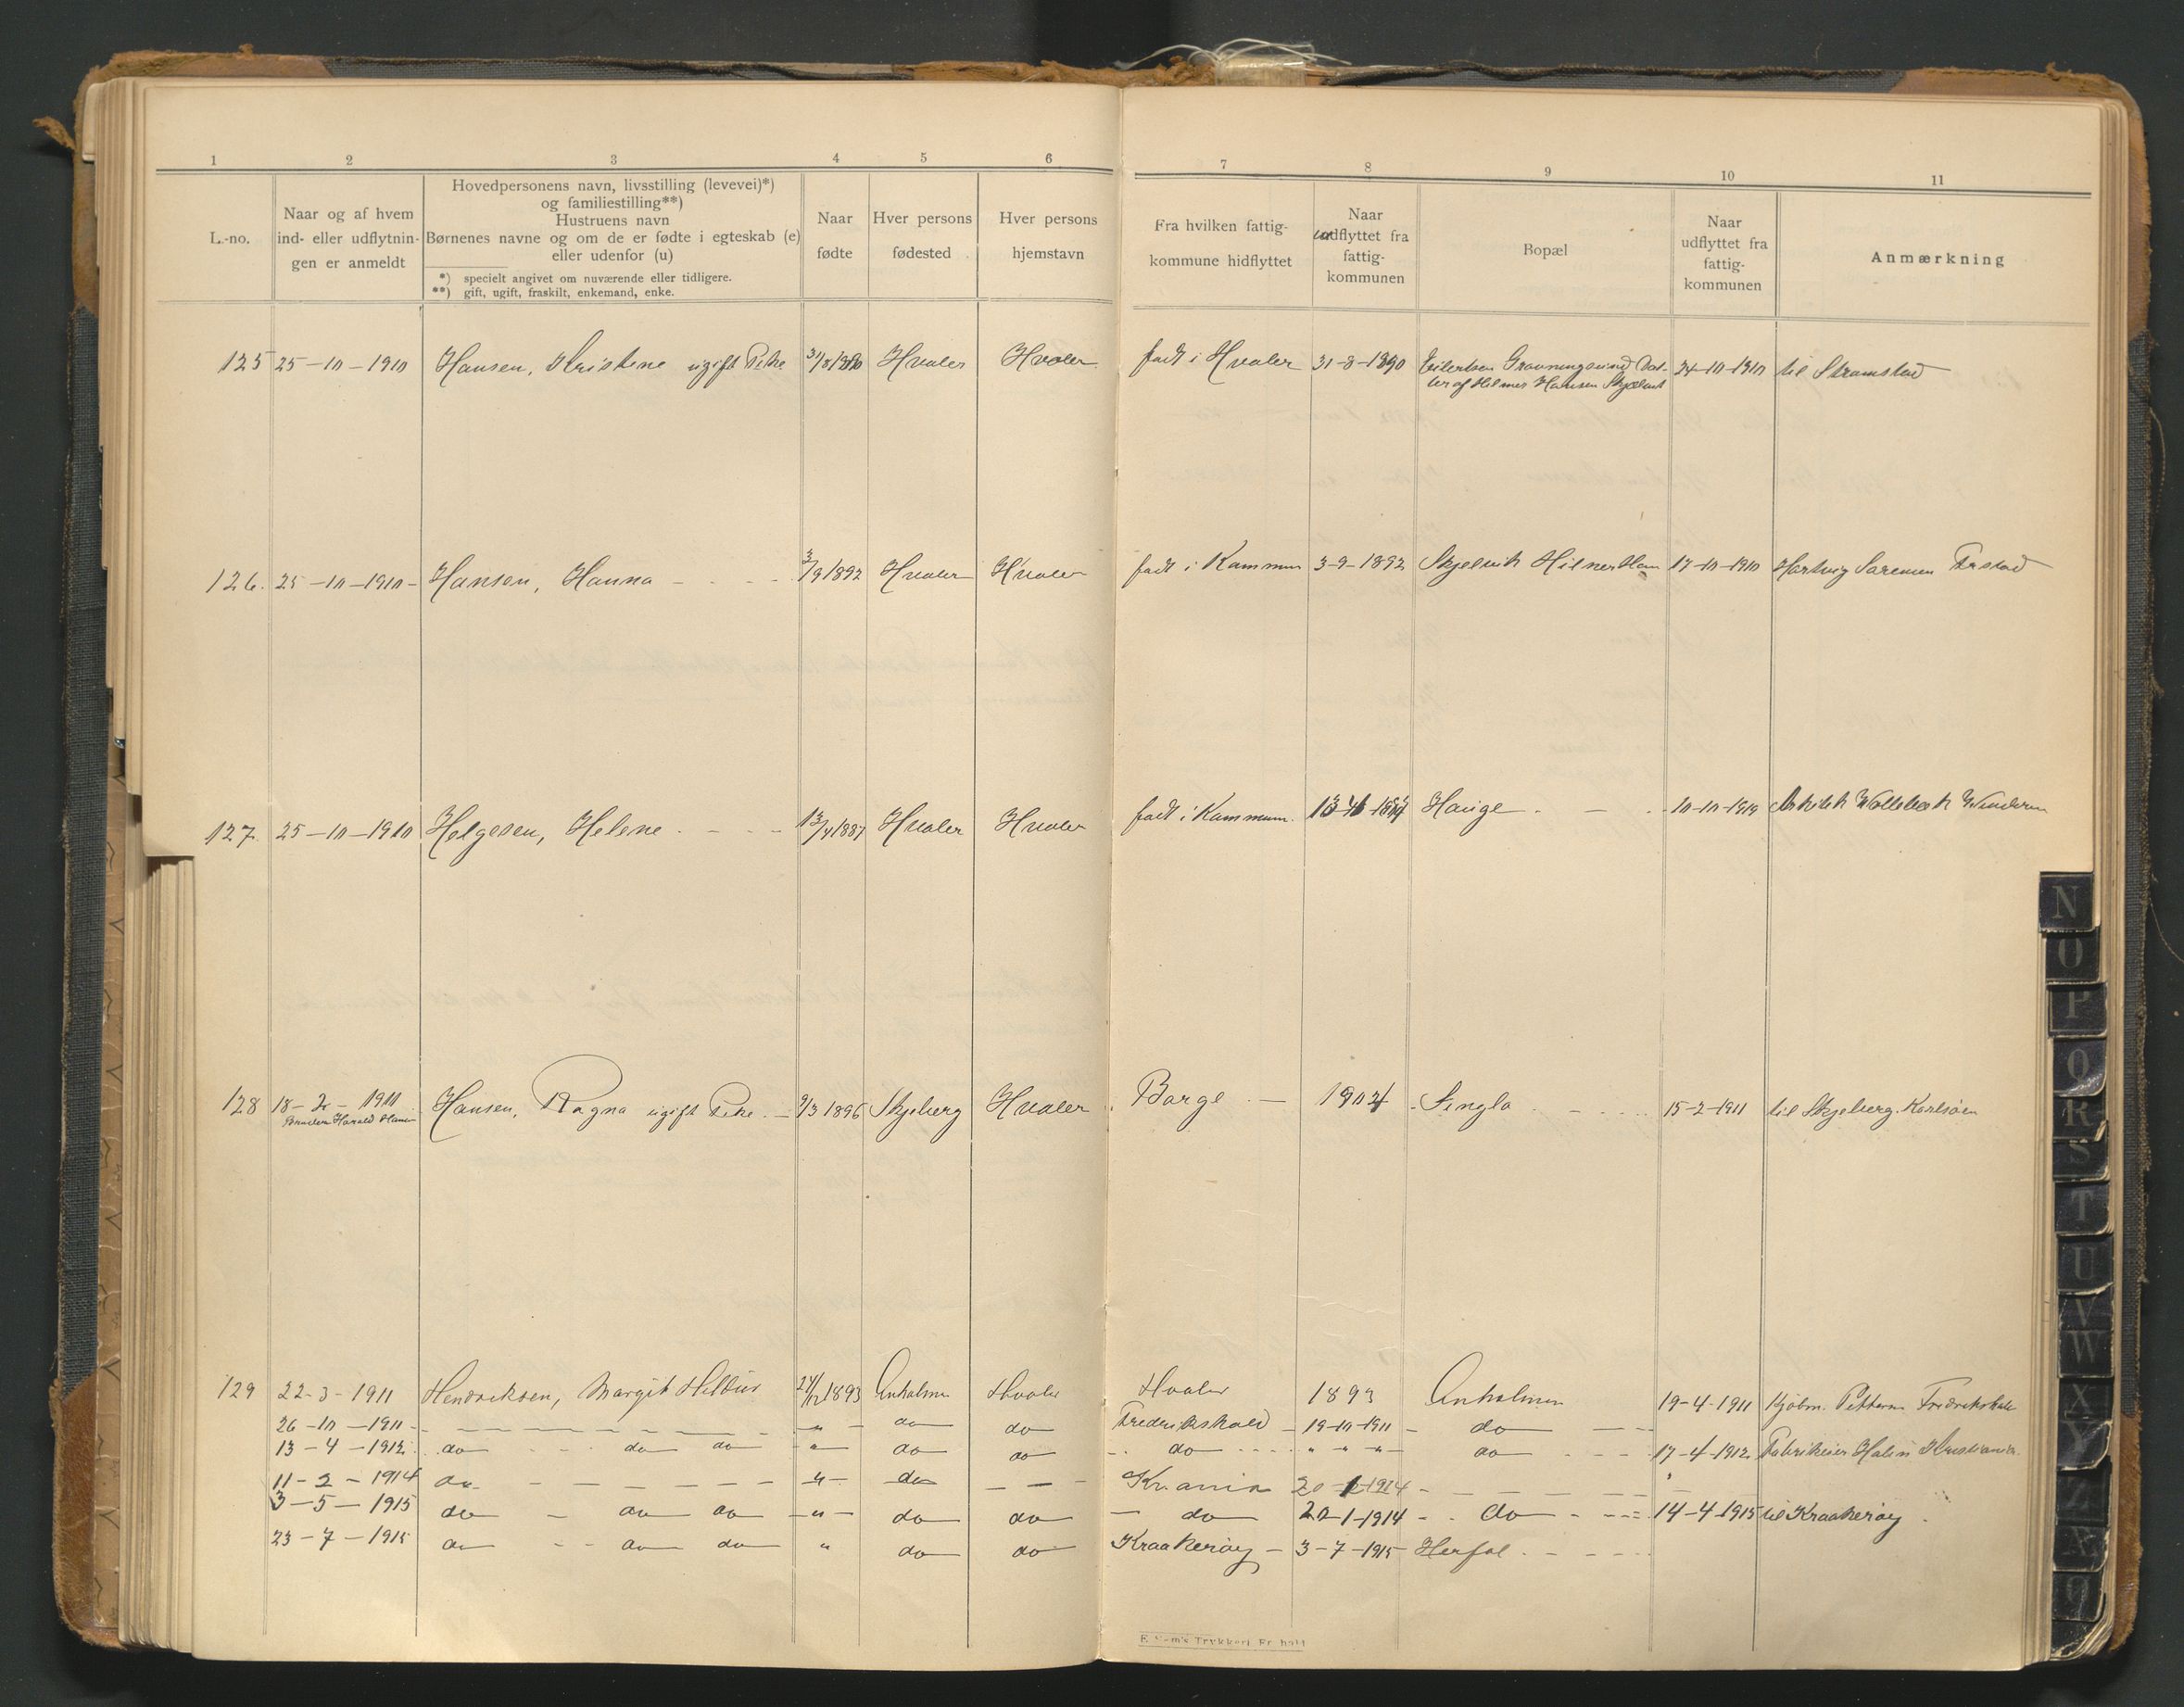 1 2 3 4 5 6 7 8 9 10 11
L.-no.
Naar og af hvem
ind- eller udflytnin-
gen er anmeldt
Hovedpersonens navn, livsstilling (levevei)*)
og familiestilling**)
Hustruens navn
Børnenes navne og om de er fødte i egteskab (e)
eller udenfor (u)
*) specielt angivet om nuværende eller tidligere.
**) gift, ugift, fraskilt, enkemand, enke.
Naar
fødte
Hver persons
fødested
Hver persons
hjemstavn
Fra hvilken fattig-
kommune hidflyttet
Naar
udflyttet fra
fattig-
kommunen
Bopæl
Naar
udflyttet fra
fattig-
kommunen
Anmærkning
125 25-10-1910 Hansen, Kristine ugift Pike 31/8 1890 Hvaler Hvaler født i Hvaler 31-8-1890 Eilertsen Gravningsund Dat- 24-10-1910 til Strømstad
ter af Hilmer Hansen
126. 25-10-1910- Hansen, Hanna - - - - 3/9 1892 Hvaler Hvaler født i Kommun 3-9-1892 Skjelvik Hilmer Han 17-10-1910 Hartvig Sørensen
127. 25-10-1910 Helgesen, Helene - - - - 13/4 1887 Hvaler Hvaler født i Kommun. Hauge - - - 10-10-1910
128 18-2-1911 Hansen, Ragna ugift Pike. - 9/3 1896 Skjeberg Hvaler Borge - 1904 Singlø - - - 15-2-1911 til Skjeberg. Karlsøen
Broderen Harald Hansen
129 22-3-1911 Hendriksen, Margit Hildur 24/12 1893 Anholmen Hvaler Hvaler 1893 Anholmen 19-4-1911 Kjøbm. Pettersen Fredrikshald
26-10-1911 - - - - - - - - " - do do Fredrikshald - 19-10-1911 - do - -
13-4-1912. do - - do do - " - do do - do - - " - " - do - - - 17-4-1912 Fabrikeier Holm Kristiania.
11-2-1914 do - - - - - - " - do - - - Kr.ania 20-1-1914 - - - - - -
3-5-1915 do - do do - " - do do - do 20-1-1914 - - do - - - 14-4-1915 til Kraakerøy.
23-7-1915 do - - do do " do do Kraakerøy - 3-7-1915 Herføl. - - -
N
O
P
Q
R
S
T
U
V
W
X
Y
Z
Æ
Ø